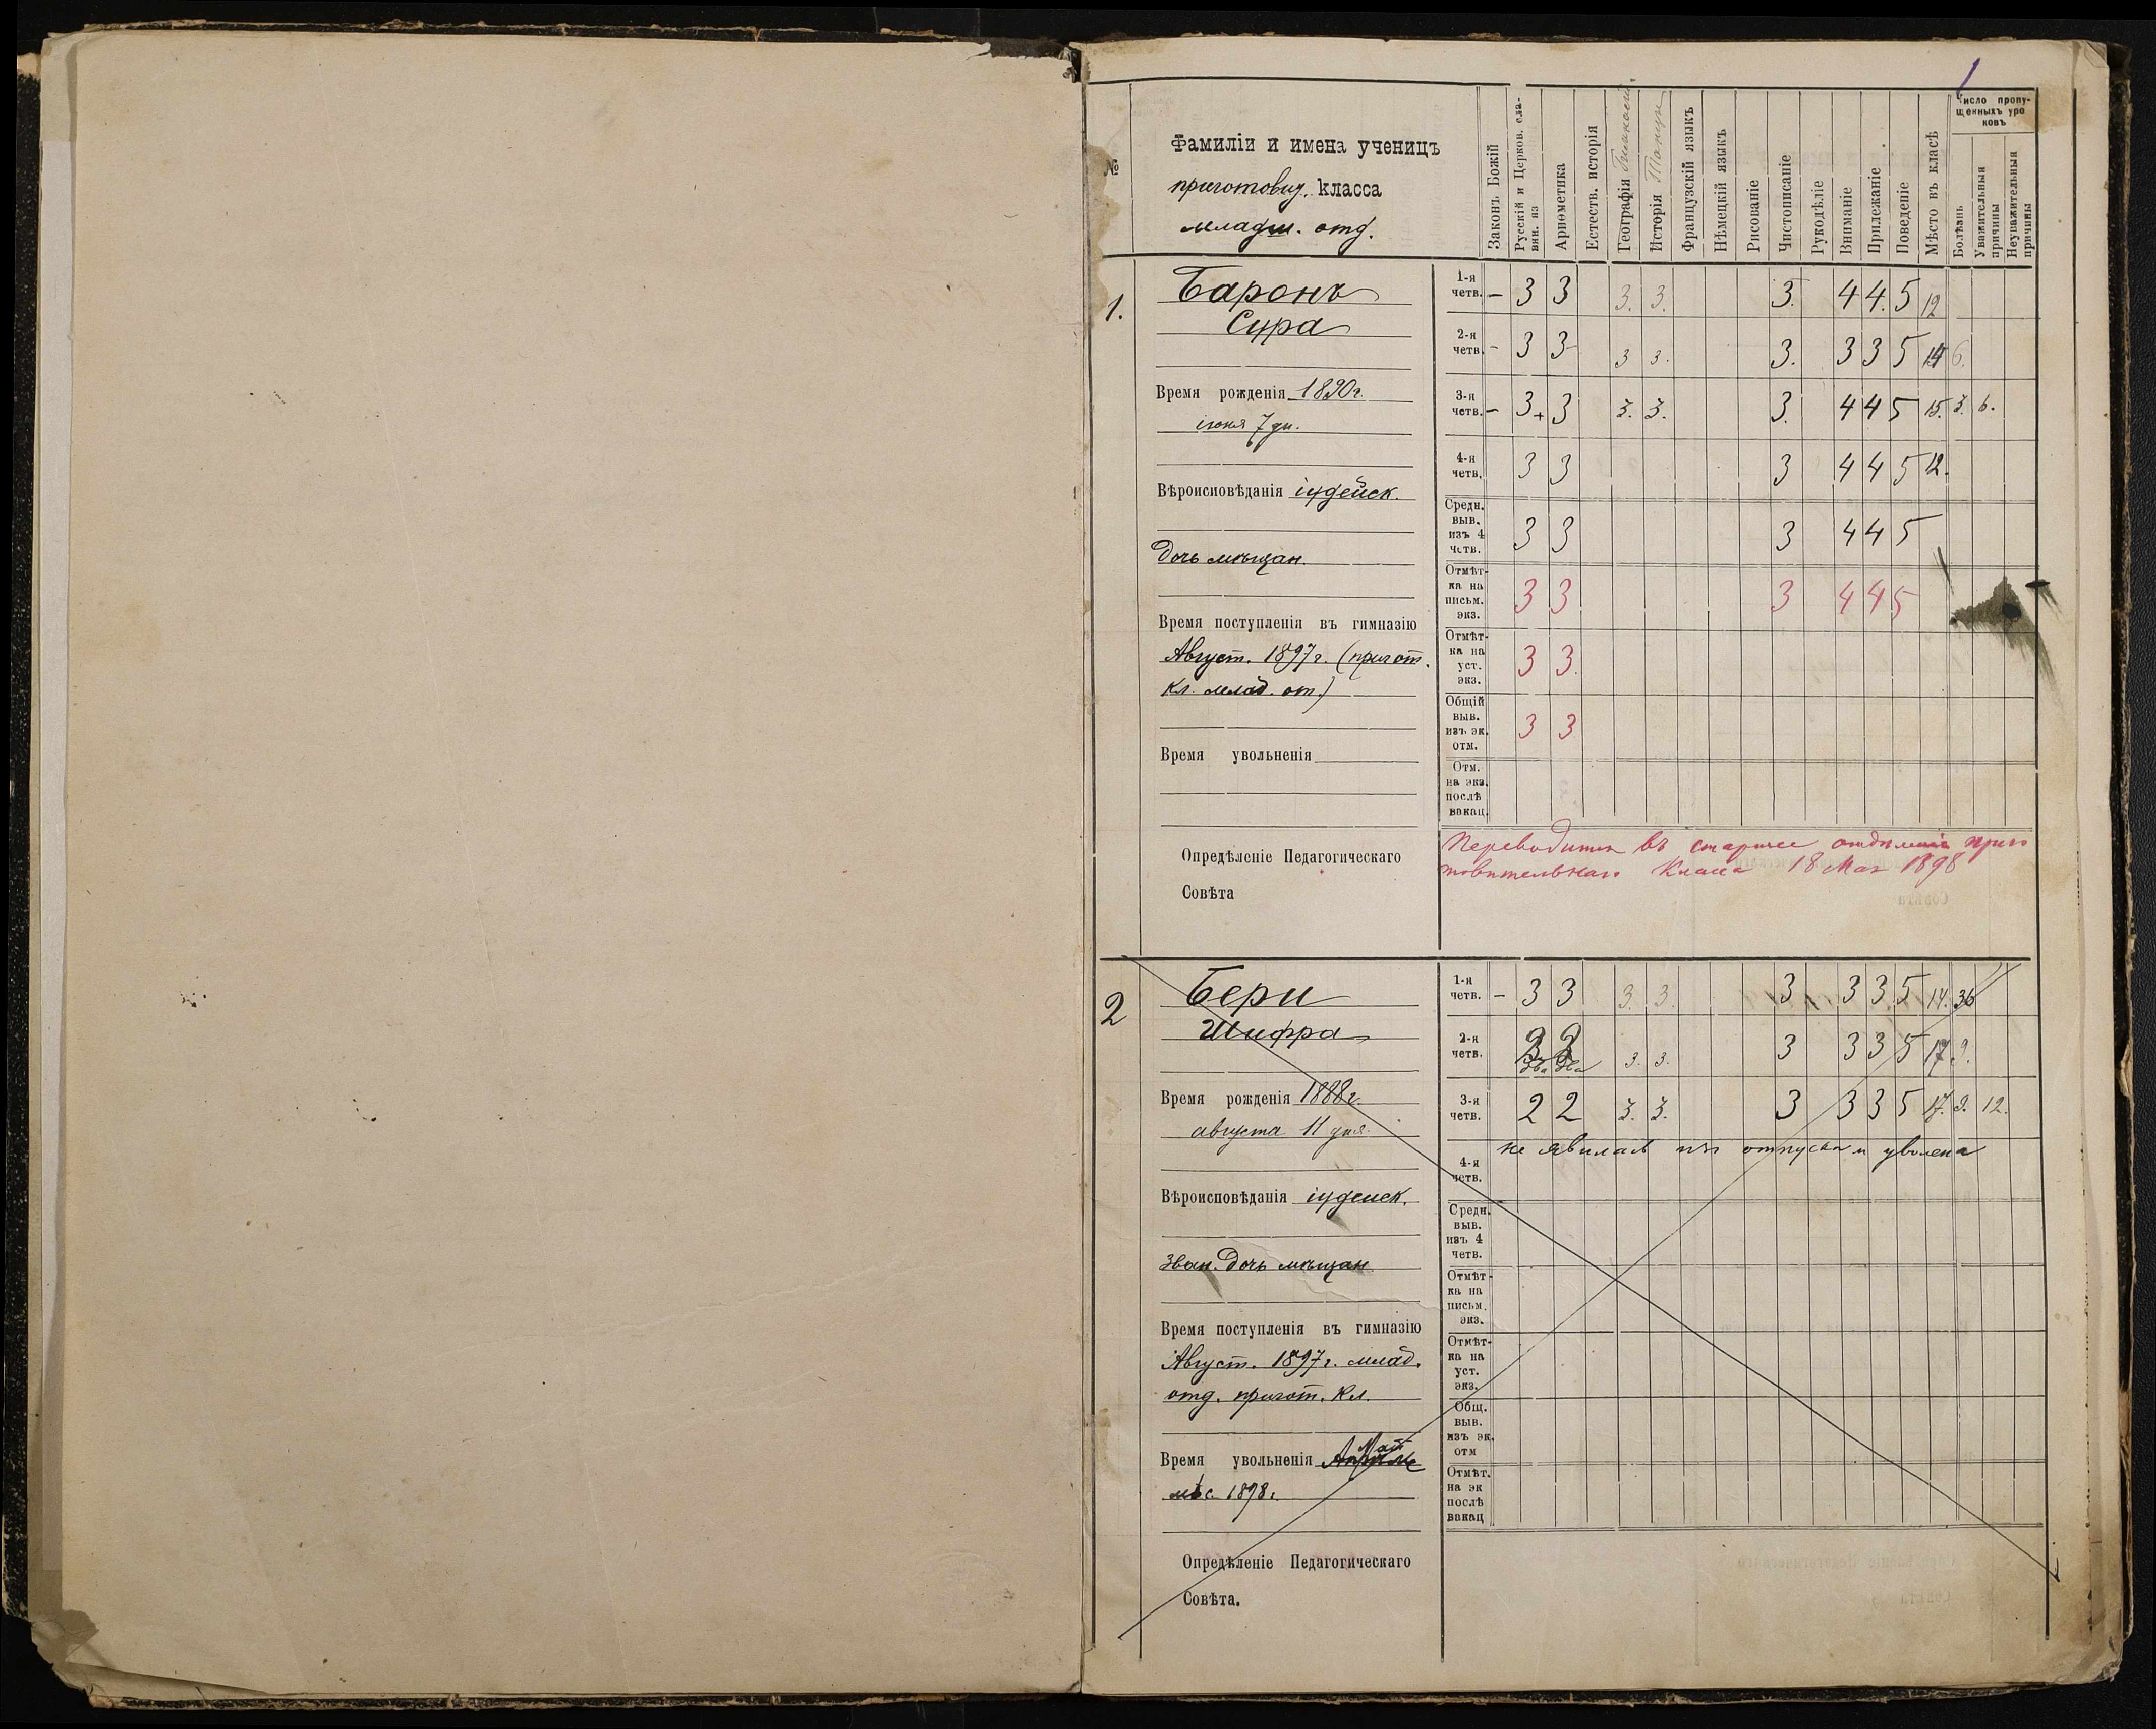 1
№
Фамиліи и имена ученицъ
приготовит. класса
младш. отд.
Законъ Божій
Русскій и Церков. сла-
вян. яз
Ариѳметика
Естеств. исторія
Географія Гимнастика
Исторія Танцы
Французскій языкъ
Нѣмецкій языкъ
Рисованіе
Чистописаніе
Рукодѣліе
Вниманіе
Прилежаніе
Поведеніе
Мѣсто въ классѣ
Число пропу-
щенныхъ уро
ковъ
Болѣзнь
Уважительныя
причины
Неуважительныя
причины
1.
Баронъ
Сура
Время рожденія 1890 г.
іюня 7 дн.
Вѣроисповѣданія іудейск.
Дочь мѣщан.
Время поступленія въ гимназію
Август. 1897 г. (пригот.
кл. млад. от.)
Время увольненія
Опредѣленіе Педагогическаго
Совѣта
1-я
четв. – 3 3 3. 3. 3. 4 4. 5 12
2-я
четв. – 3 3 3 3. 3. 3 3 5 14 6.
3-я
четв. – 3+ 3 3. 3. 3. 4 4 5 15. 3. 6.
4-я
четв. 3 3 3 4 4 5 12.
Средн.
выв.
изъ 4
четв. 3 3 3 4 4 5
Отмѣт-
ка на
письм.
экз. 3 3 3 4 4 5
Отмѣт-
ка на
уст.
экз. 3 3
Общій
выв.
изъ эк.
отм. 3 3
Отм.
на экз.
послѣ
вакац.
Переводится въ старшее отдѣленіе приго
товительнаго класса 18 Мая 1898
2
Бери
Шифра
Время рожденія 1888 г.
августа 11 дня.
Вѣроисповѣданія іудейск.
Зван. Дочь мѣщан
Время поступленія въ гимназію
Август. 1897 г. млад.
отд. пригот. кл.
Май
Время увольненія Апрѣль
мѣс. 1898 г.
Опредѣленіе Педагогическаго
Совѣта.
1-я
четв. – 3 3 3. 3. 3 3 3. 5 14. 36
2-я
четв. 3 3 3. 3. 3 3 3 5 17 9.
два два
3-я
четв. 2 2 3. 3. 3 3 3 5 17. 9. 12.
не явилась изъ отпуска и уволена
4-я
четв.
Средн.
выв.
изъ 4
четв.
Отмѣт-
ка на
письм.
экз.
Отмѣт-
ка на
уст.
экз.
Общ.
выв.
изъ эк.
отм
Отмѣт.
на эк
послѣ
вакац